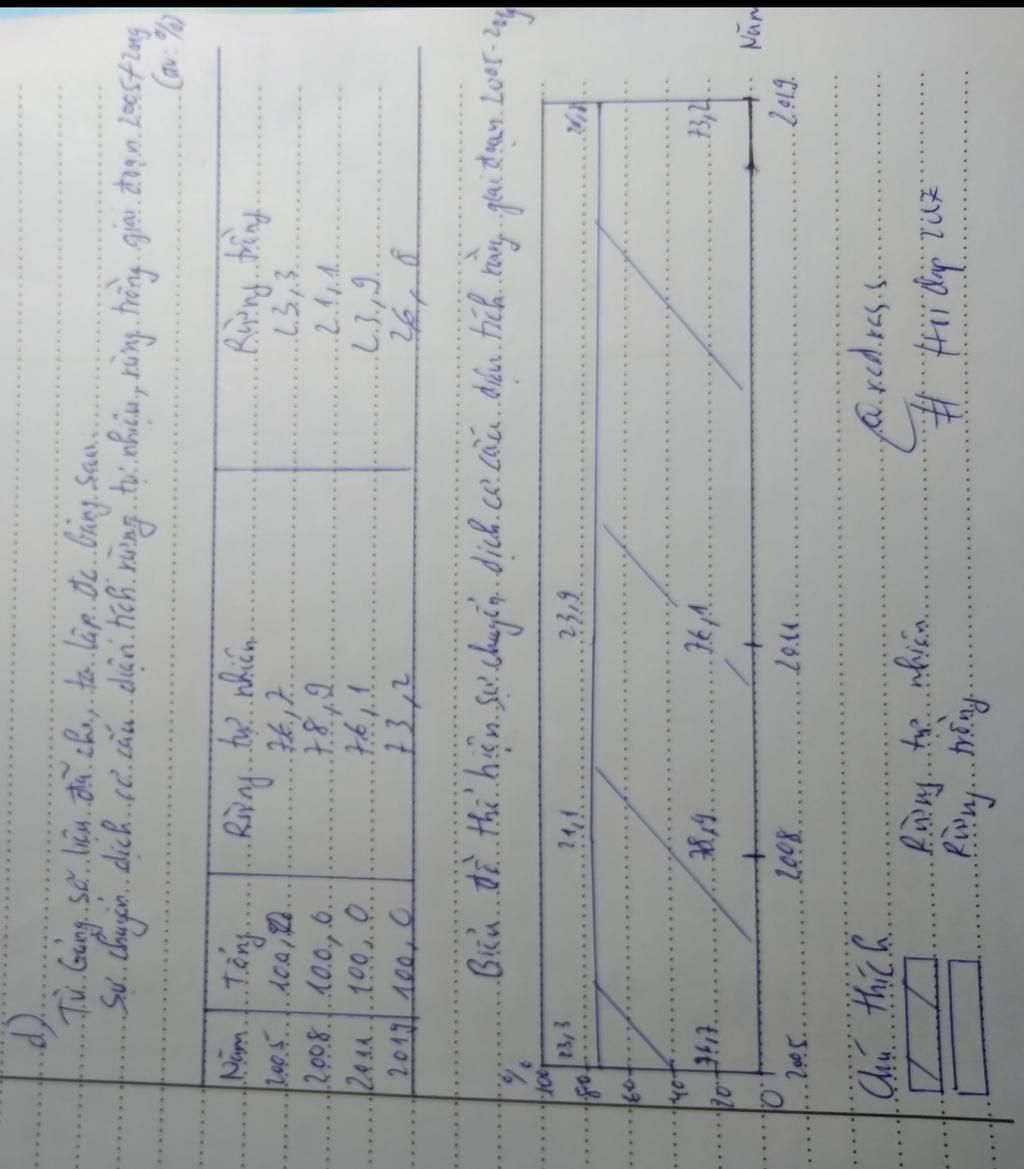 d)
Từ bảng số liệu đã cho, ta lập đc bảng sau
Sự chuyển dịch cơ cấu diện tích rừng tự nhiên, rừng trồng giai đoạn 2005 + 2019
(đv: %)
Năm Tổng Rừng tự nhiên Rừng trồng
2005 100,0 76,7 23,3
2008 100,0 78,9 21,1
2011 100,0 76,1 23,9
2019 100,0 73,2 26,8
Biểu đồ thể hiện sự chuyển dịch cơ cấu diện tích rừng giai đoạn 2005-2019
%
100
80
60
40
20
0
23,3 21,1 23,9 26,8
76,7 78,9 76,1 73,2
2005 2008 2011 2019
Năm
Chú thích
Rừng tự nhiên
Rừng trồng